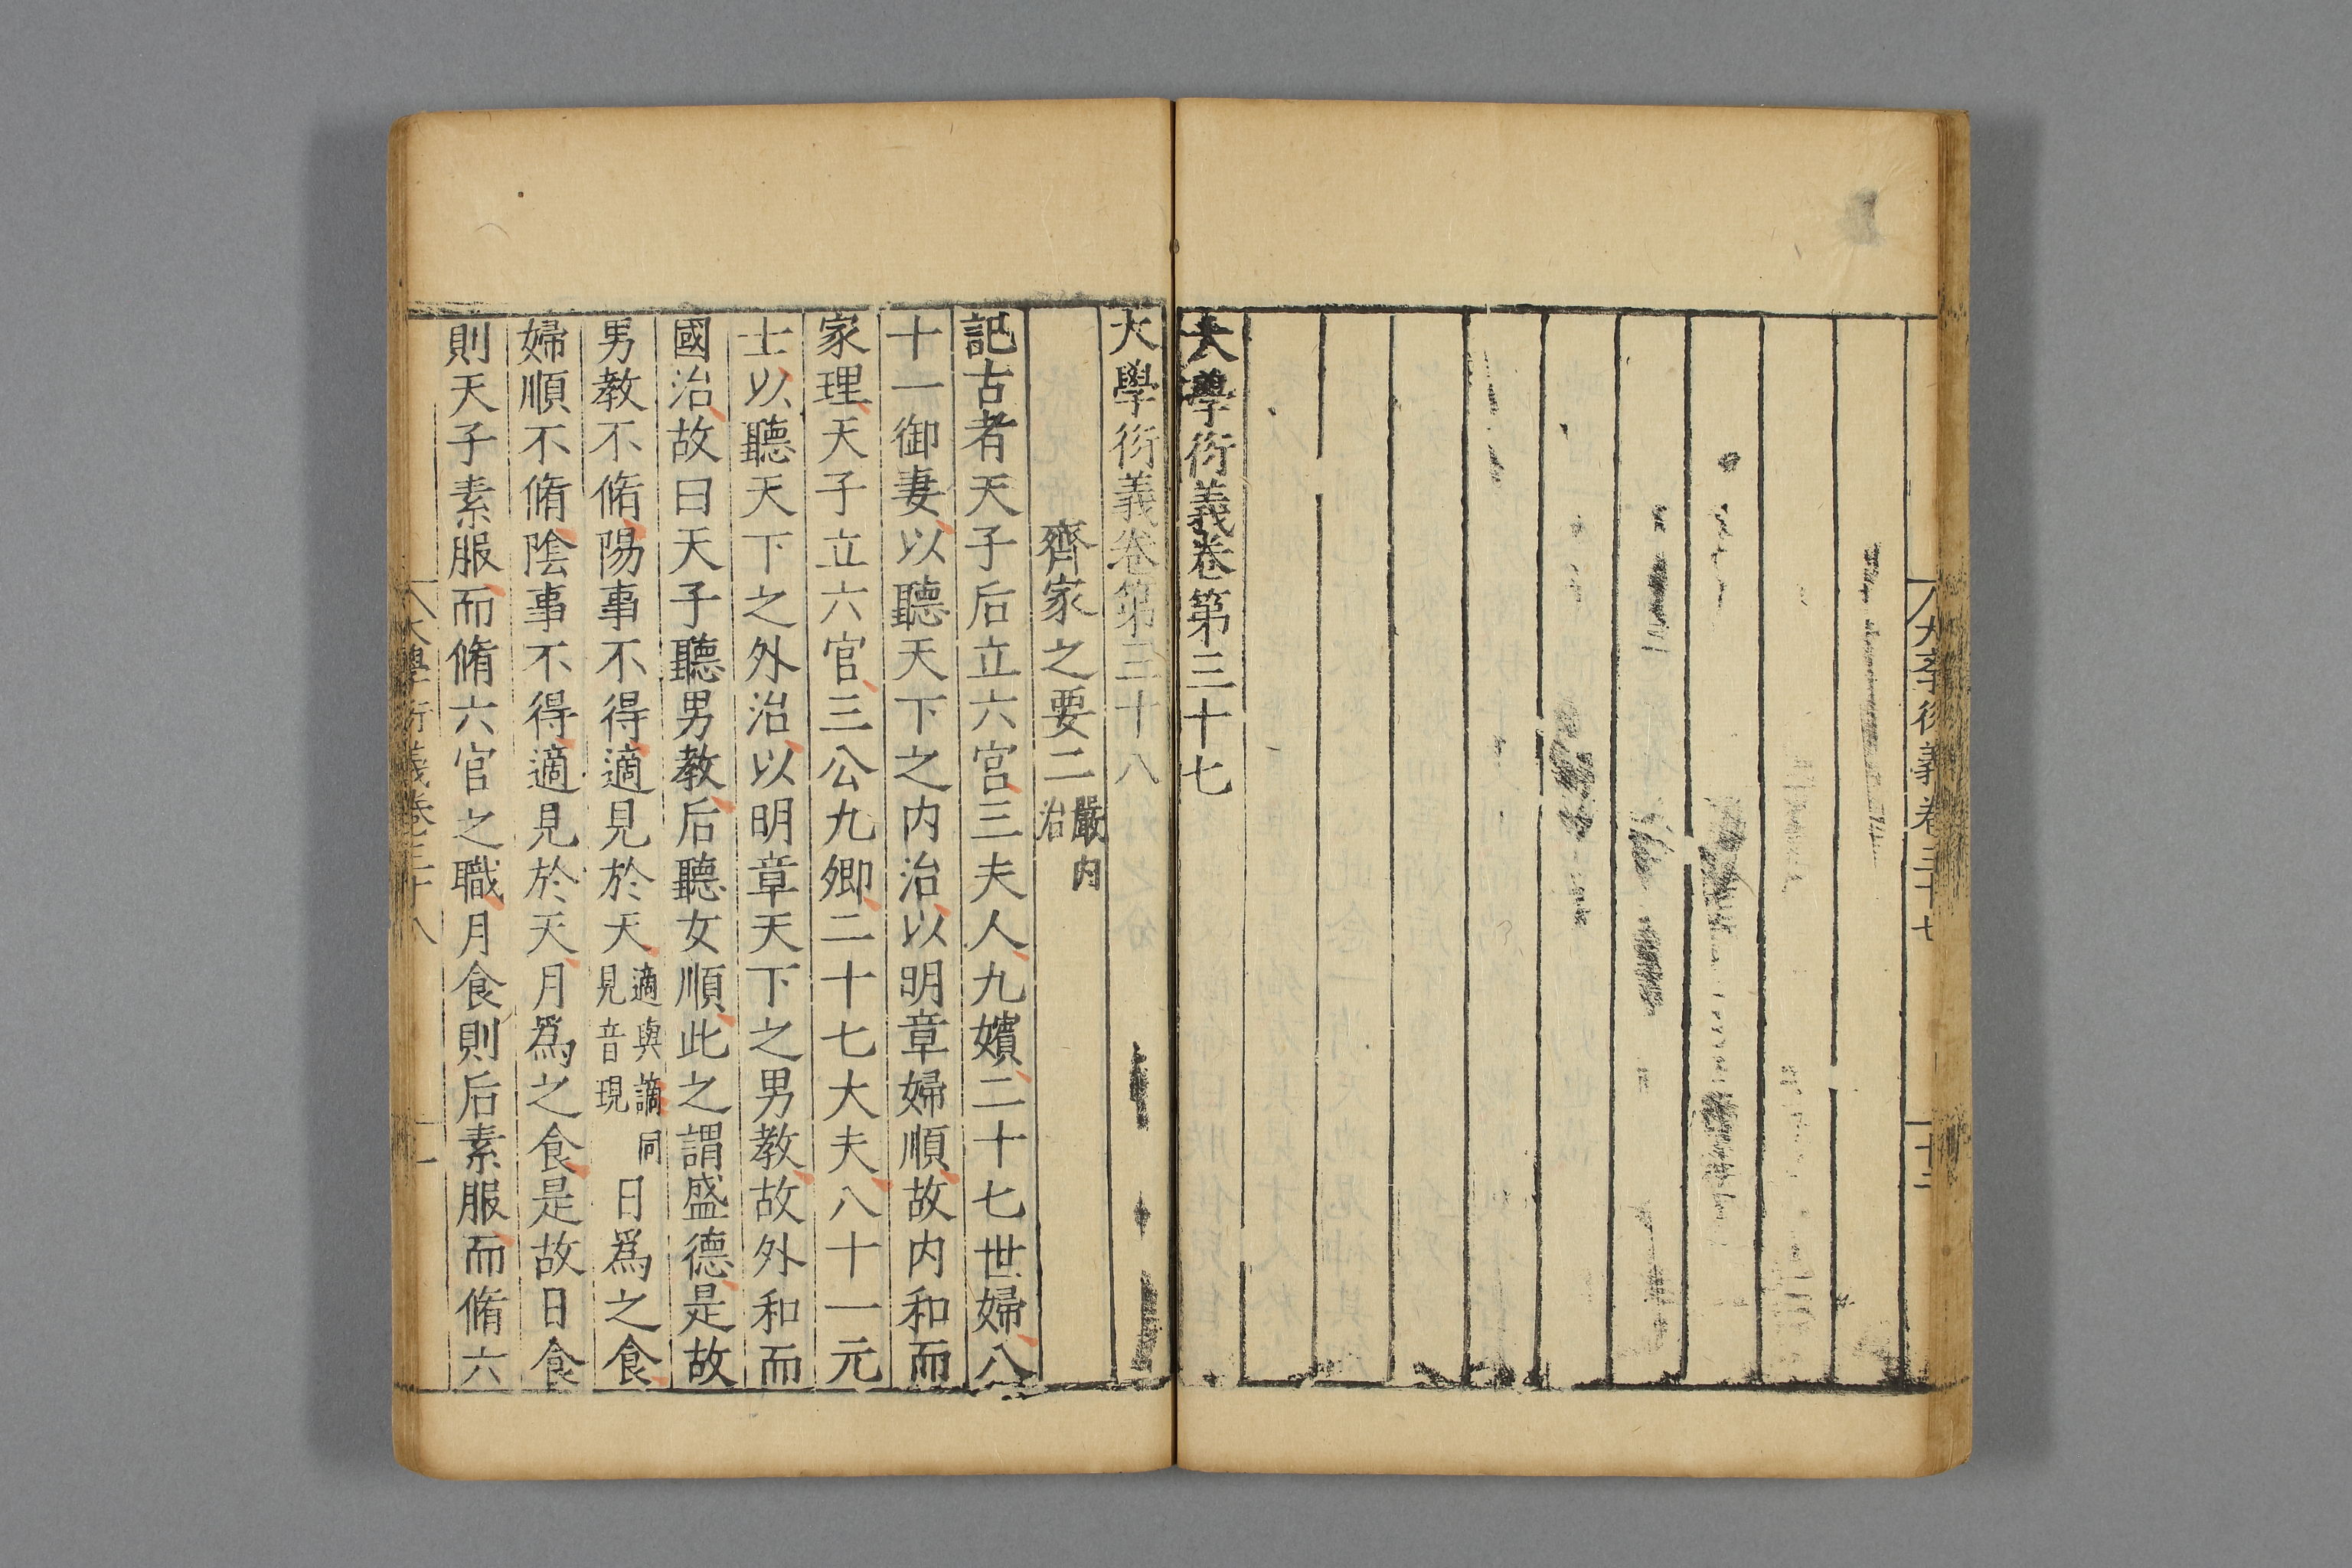 大學衍義卷三十七
十二
大學衍義卷第三十七
大學衍義卷第三十八
齊家之要二嚴内治
記古者天子后立六宮三夫人九嬪二十七世婦八
十一御妻以聽天下之内治以明章婦順故内和而
家理天子立六官三公九卿二十七大夫八十一元
士以聽天下之外治以明章天下之男教故外和而
國治故曰天子聽男教后聽女順此之謂盛德是故
男教不脩陽事不得適見於天適與謫同見音現日爲之食
婦順不脩陰事不得適見於天月爲之食是故日食
則天子素服而脩六官之職月食則后素服而脩六
大學衍義卷三十八
一